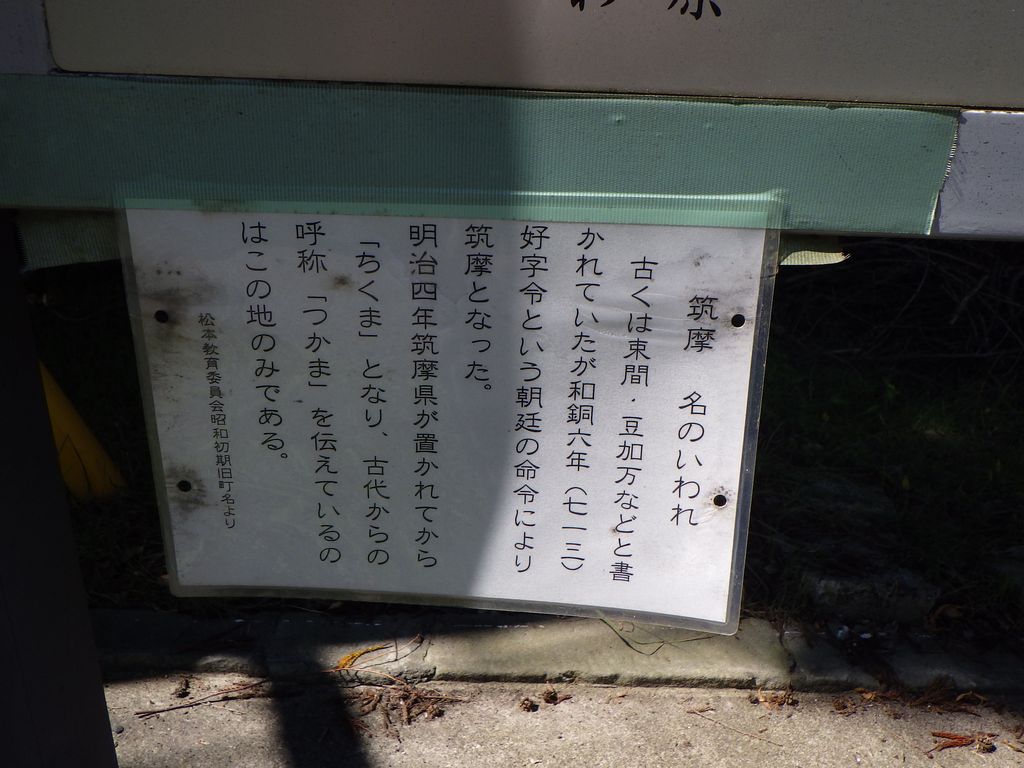 筑摩　名のいわれ
古くは束間・豆加万などと書
かれていたが和銅六年（七一三）
好字令という朝廷の命令により
筑摩となった。
明治四年筑摩県が置かれてから
「ちくま」となり、古代からの
呼称「つかま」を伝えているの
はこの地のみである。
松本教育委員会昭和初期旧町名より